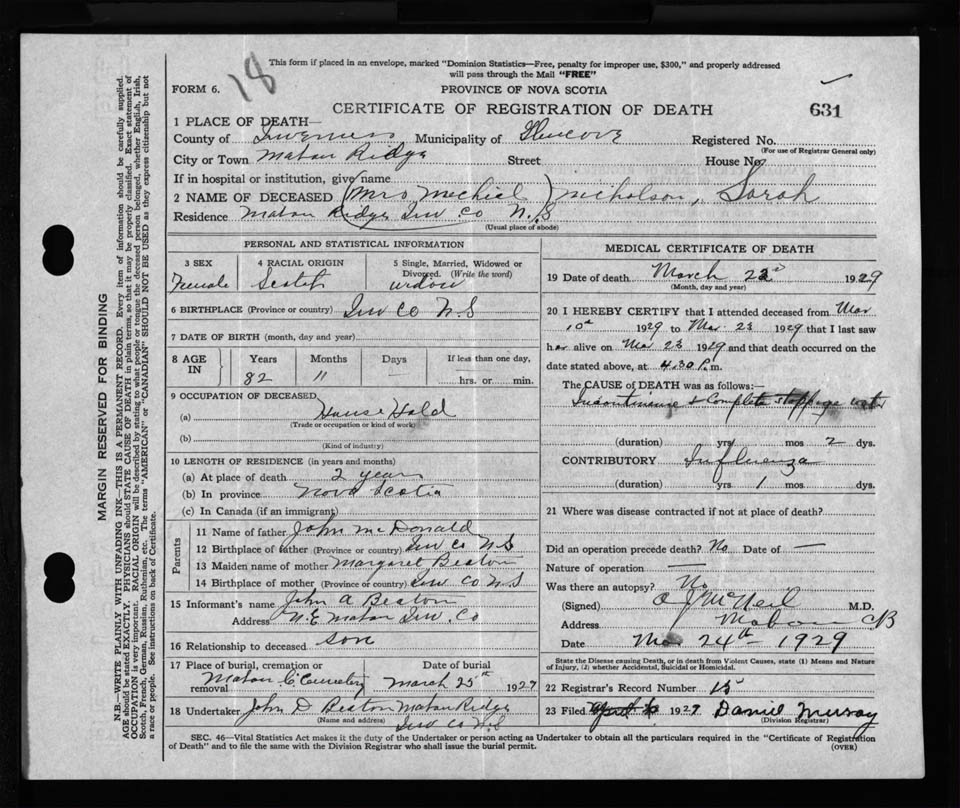 18
This form if placed in an envelope, marked "Dominion Statistics—Free, penalty for improper use, $300," and properly addressed
will pass through the Mail "FREE"
FORM 6.
PROVINCE OF NOVA SCOTIA
CERTIFICATE OF REGISTRATION OF DEATH
631
1 PLACE OF DEATH—
County of Inverness Municipality of Registered No.
(For use of Registrar General only)
City or Town Mabou Ridge Street House No.
If in hospital or institution, give name
2 NAME OF DECEASED (Mrs Mechiel) Nicholson, Sarah
Residence Mabou Ridge Inv Co N.S
(Usual place of abode)
PERSONAL AND STATISTICAL INFORMATION
3 SEX 4 RACIAL ORIGIN 5 Single, Married, Widowed or
Divorced. (Write the word)
Female Scotch widow
6 BIRTHPLACE (Province or country) Inv Co N.S
7 DATE OF BIRTH (month, day and year)
8 AGE IN Years Months Days If less than one day,
82 11 — hrs. or min.
9 OCCUPATION OF DECEASED
(a) House Hold
(Trade or occupation or kind of work)
(b)
(Kind of industry)
10 LENGTH OF RESIDENCE (in years and months)
(a) At place of death 2 years
(b) In province Nova Scotia
(c) In Canada (if an immigrant)
Parents
11 Name of father John McDonald
12 Birthplace of father (Province or country) Inv Co N.S
13 Maiden name of mother Margaret Beaton
14 Birthplace of mother (Province or country) Inv Co N.S
15 Informant's name John A Beaton
Address N.E Mabou Inv. Co
16 Relationship to deceased son
17 Place of burial, cremation or Date of burial
removal Mabou C. Cemetery March 25th 1929
18 Undertaker John D Beaton Mabou Ridge
(Name and address) Inv Co N.S
MEDICAL CERTIFICATE OF DEATH
19 Date of death March 23d 1929
(Month, day and year)
20 I HEREBY CERTIFY that I attended deceased from Mar
10th 1929 to Mar 23 1929 that I last saw
her alive on Mar 23 1929 and that death occurred on the
date stated above, at 4.30 P.m.
The CAUSE of DEATH was as follows:—
Incontinence & Complete stoppage water
(duration) yrs mos 2 dys.
CONTRIBUTORY Influenza
(duration) yrs 1 mos dys.
21 Where was disease contracted if not at place of death?
Did an operation precede death? No Date of —
Nature of operation —
Was there an autopsy? No
(Signed) O J McNeil M.D.
Address Mabou CB
Date Mar 24th 1929
State the Disease causing Death, or in death from Violent Causes, state (1) Means and Nature
of Injury, (2) whether Accidental, Suicidal or Homicidal.
22 Registrar's Record Number 15
23 Filed April 1929 Daniel Murray
(Division Registrar)
SEC. 46—Vital Statistics Act makes it the duty of the Undertaker or person acting as Undertaker to obtain all the particulars required in the "Certificate of Registration
of Death" and to file the same with the Division Registrar who shall issue the burial permit. (OVER)
MARGIN RESERVED FOR BINDING
N.B.—WRITE PLAINLY WITH UNFADING INK—THIS IS A PERMANENT RECORD. Every item of information should be carefully supplied.
AGE should be stated EXACTLY. PHYSICIANS should STATE CAUSE OF DEATH in plain terms, so that it may be properly classified. Exact statement of
OCCUPATION is very important. RACIAL ORIGIN will be described by stating to what people or tongue the deceased person belonged, whether English, Irish,
Scotch, French, German, Russian, Ruthenian, etc. The terms "AMERICAN" or "CANADIAN" SHOULD NOT BE USED as they express citizenship but not
a race or people. See instructions on back of Certificate.